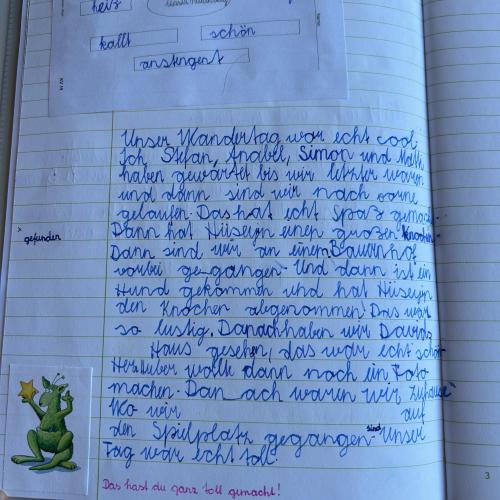 heiß
kallt
schön
anstengert
Unser Wandertag war echt cool
Ich Stefan, Anabel, Simon und
haben gewartet bis wir letzter waren
und dann sind wir nach vorne
gelaufen. Das hat echt Spaß gemacht.
Dann hat Hüseyin einen großen Knochen
gefunden
Dann sind wir an einem Bauernhof
vorbei gegangen. Und dann ist ein
Hund gekommen und hat Hüseyin
den Knochen abgenommen! Das war
so lustig. Danach haben wir Davids
Haus gesehen, das war echt schön
Herr Huber wollte dann noch ein Foto
machen. Danach waren wir Zuhause
Wo wir auf
den Spielplatz gegangen sind Unser
Tag war echt toll.
Das hast du ganz toll gemacht!
3